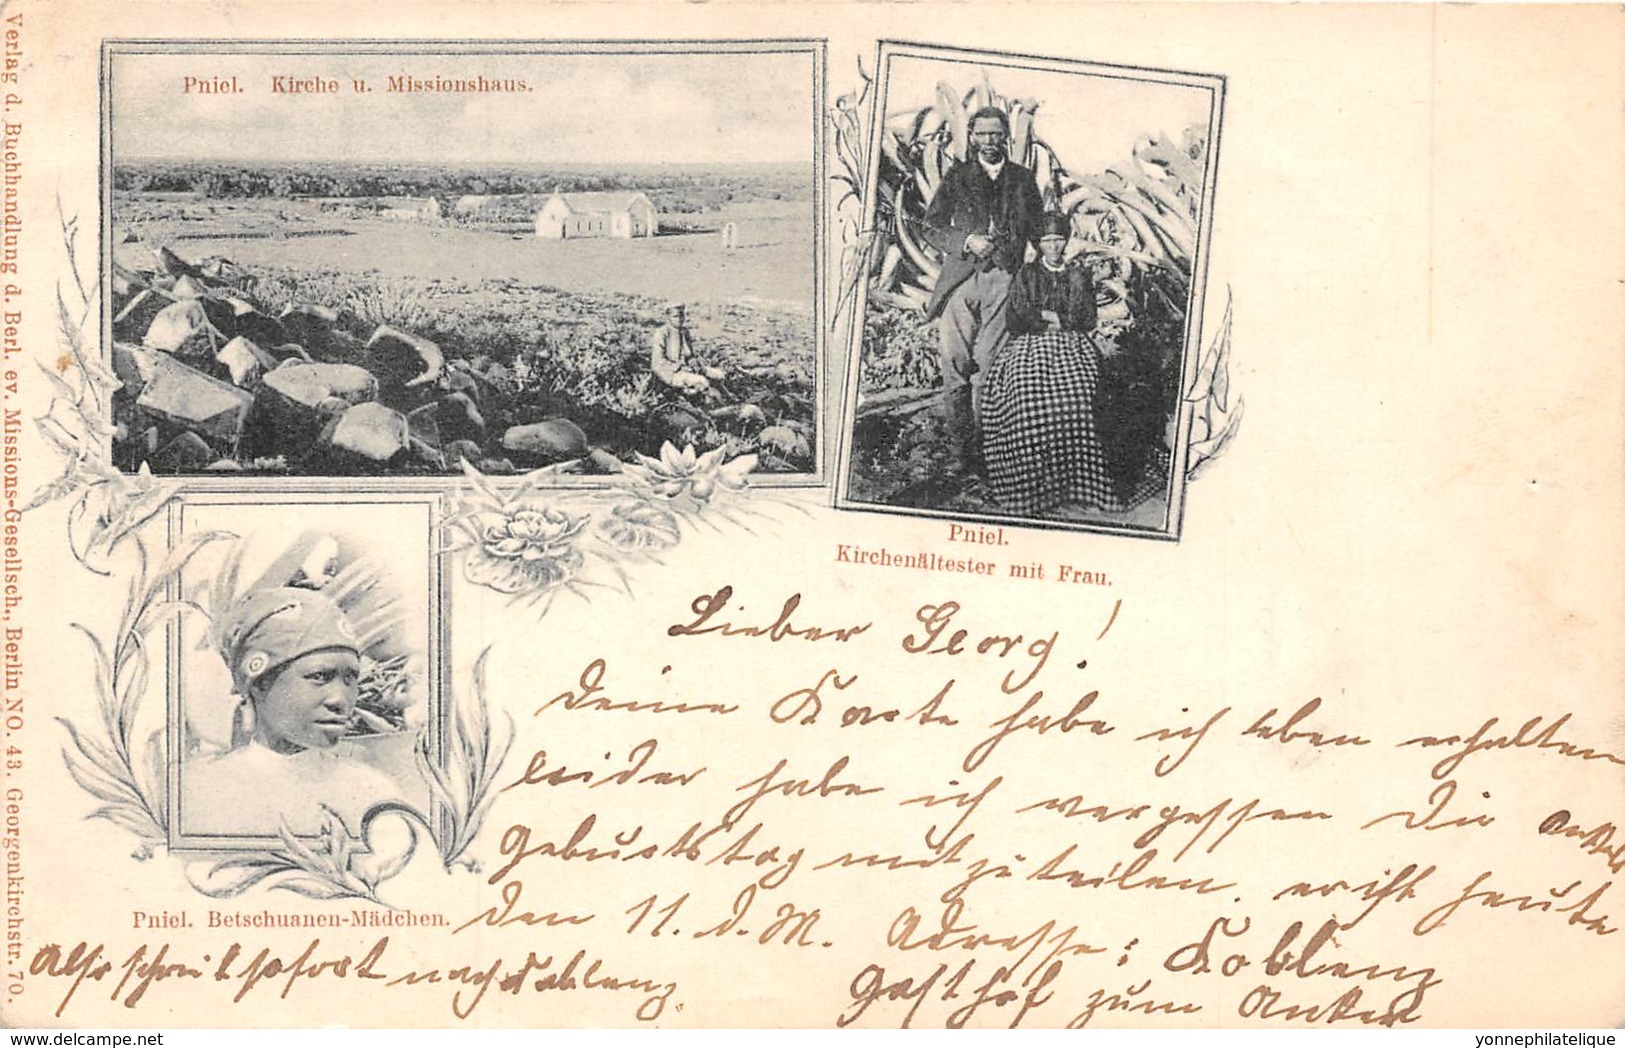 Verlag d. Buchhandlung d. Berl. ev. Missions-Gesellsch., Berlin NO. 43. Georgenkirchstr. 70.
Pniel. Kirche u. Missionshaus.
Pniel.
Kirchenältester mit Frau.
Pniel. Betschuanen-Mädchen.
Lieber Georg!
Deine Karte habe ich eben erhalten
leider habe ich vergessen Dir
Geburtstag mitzuteilen. er ist heute
den 11. d. M. Adresse: Koblenz
Gasthof zum Anker
Also schreib sofort nach Koblenz.
yonnephilatelique